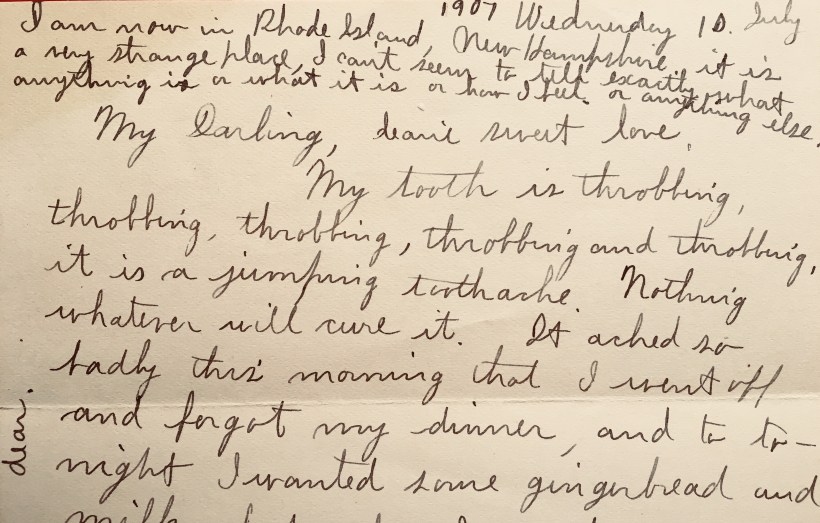 1907 Wednesday 10. July
I am now in Rhode Island, New Hampshire it is
a very strange place, I can't seem to tell exactly what
anything is or what it is or how I feel. or anything else.
My Darling, dearie sweet love,
My tooth is throbbing,
throbbing, throbbing, throbbing and throbbing,
it is a jumping toothache. Nothing
whatever will cure it. It ached so
badly this morning that I went off
and forgot my dinner, and to to-
night I wanted some gingerbread and
milk
dear.